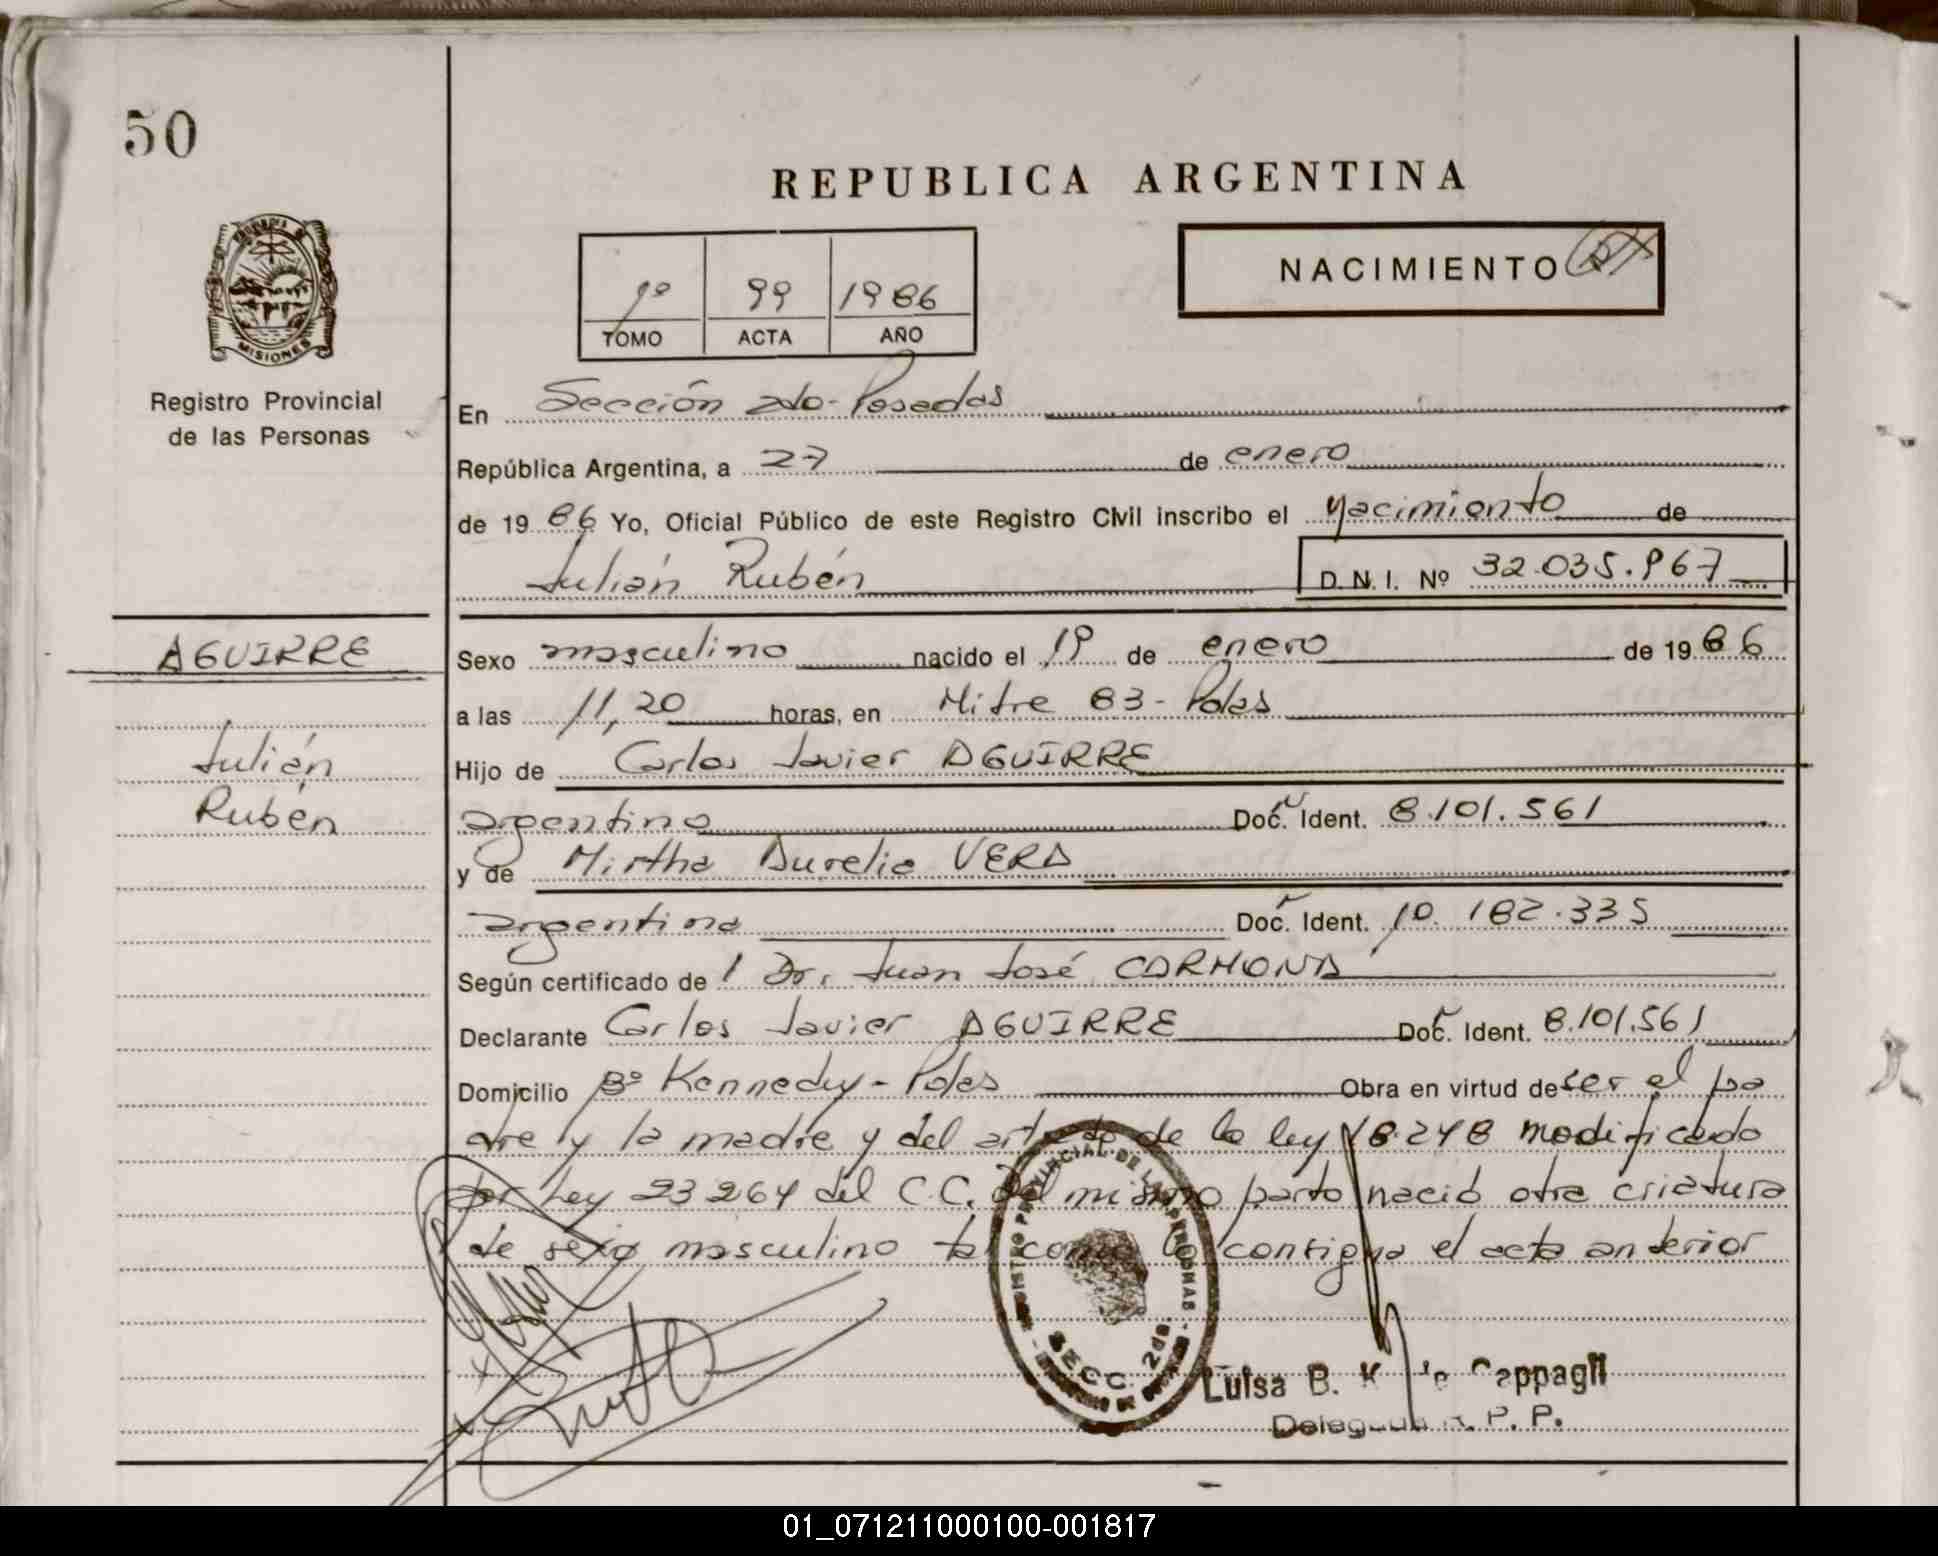 50
REPUBLICA ARGENTINA
1º 99 1986
TOMO ACTA AÑO
NACIMIENTO
MISIONES
Registro Provincial
de las Personas
En Sección 2do-Posadas
República Argentina, a 27 de enero
de 1986 Yo, Oficial Público de este Registro Civil inscribo el nacimiento de
Julián Rubén D. N. I. Nº 32.035.967
AGUIRRE
Sexo masculino nacido el 19 de enero de 1986
a las 11,20 horas, en Mitre 83-Pdas
Julián
Hijo de Carlos Javier AGUIRRE
Rubén
argentino Doc. Ident. 8.101.561
y de Mirtha Aurelia VERA
argentina Doc. Ident. 10.182.335
Según certificado de l Dr. Juan José CARMONA
Declarante Carlos Javier AGUIRRE Doc. Ident. 8.101.561
Domicilio Bº Kennedy-Pdas Obra en virtud de ser el pa
dre y la madre y del de la ley 18.248 modificado
por Ley 23264 del C.C. Del mismo parto nació otra criatura
de sexo masculino tal como lo consigna el acta anterior
REGISTRO PROVINCIAL DE LAS PERSONAS
SECC. 2da.
Luisa B. K de Cappagli
Delegada R. P. P.
01_071211000100-001817